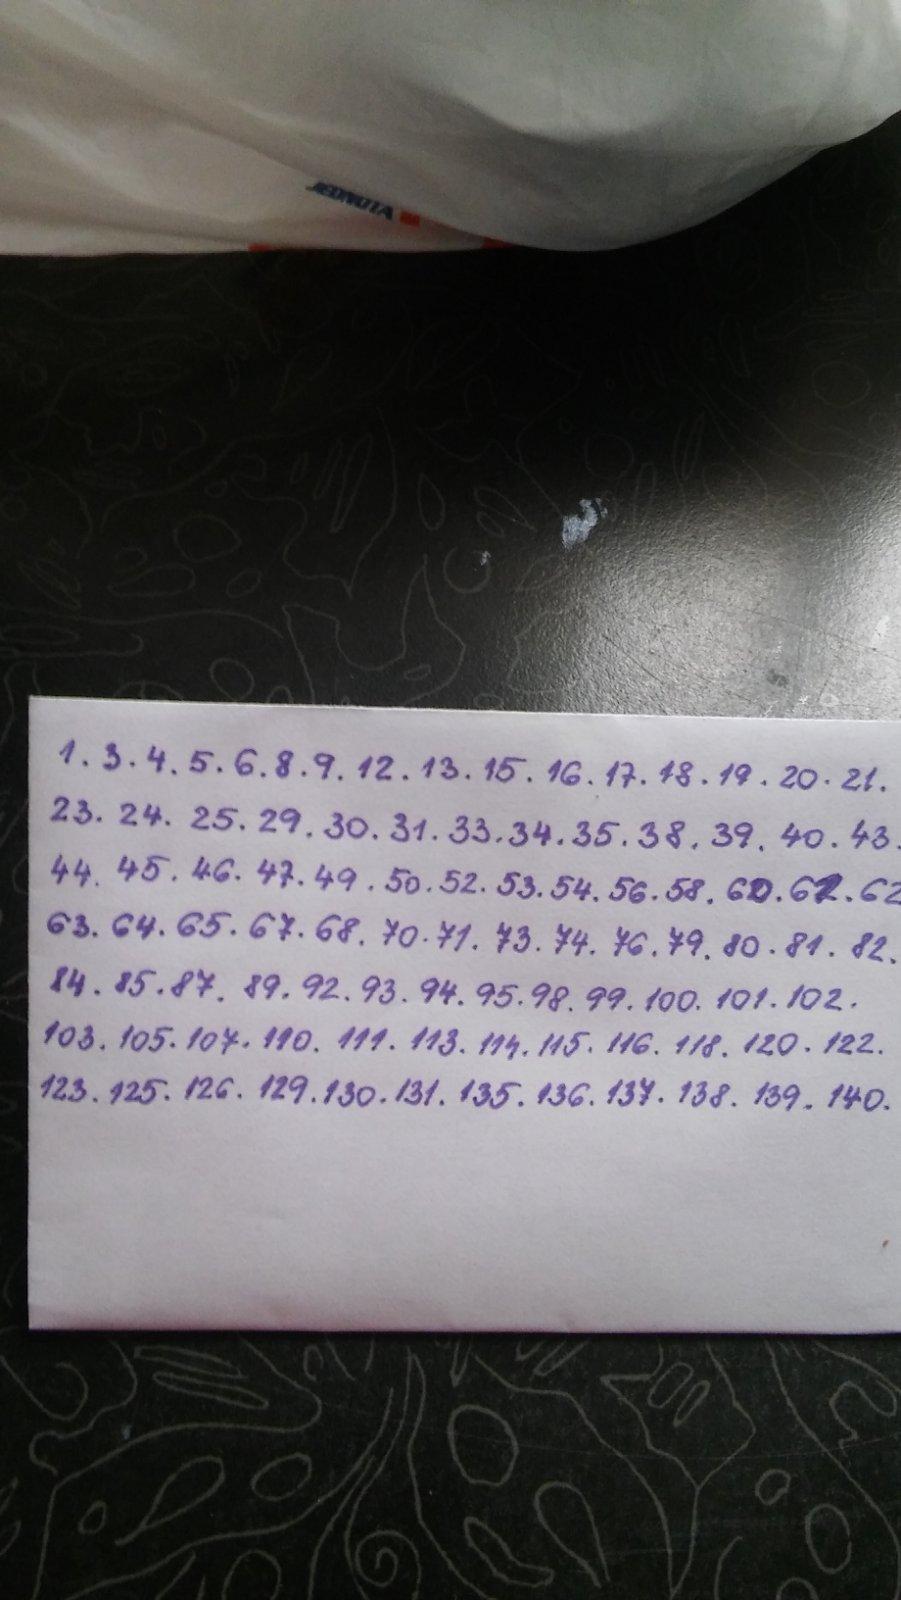 JEDNOTA
1. 3. 4. 5. 6. 8. 9. 12. 13. 15. 16. 17. 18. 19. 20. 21.
23. 24. 25. 29. 30. 31. 33. 34. 35. 38. 39. 40. 43.
44. 45. 46. 47. 49. 50. 52. 53. 54. 56. 58. 60. 62
63. 64. 65. 67. 68. 70. 71. 73. 74. 76. 79. 80. 81. 82.
84. 85. 87. 89. 92. 93. 94. 95. 98. 99. 100. 101. 102.
103. 105. 107. 110. 111. 113. 114. 115. 116. 118. 120. 122.
123. 125. 126. 129. 130. 131. 135. 136. 137. 138. 139. 140.